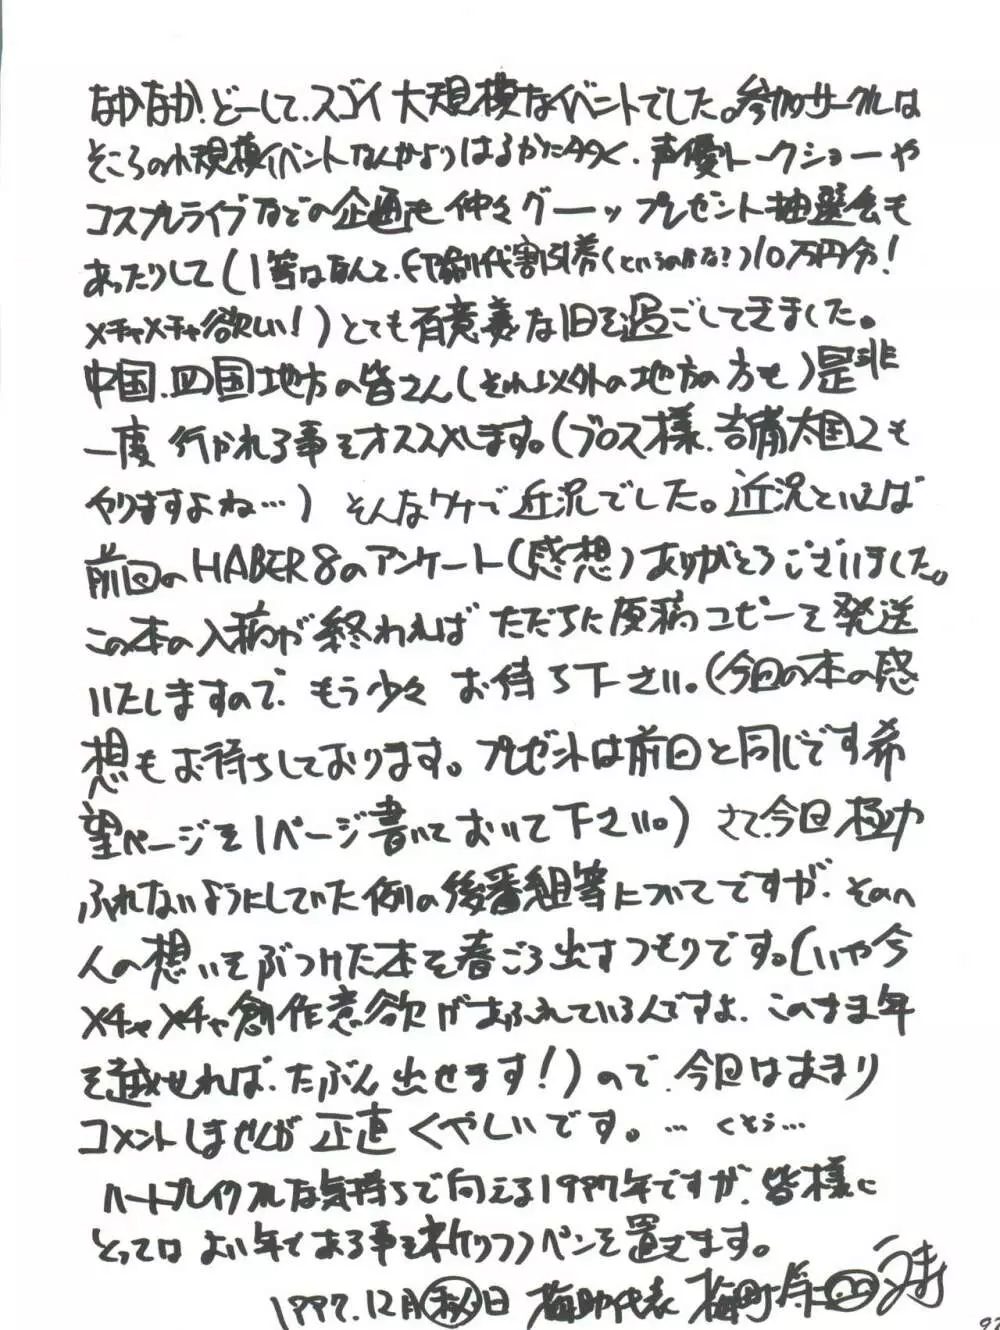 なかなか、どーして、スゴイ大規模なイベントでした。参加サークルは
そこらの小規模イベントなんかよりはるかに多く、声優トークショーや
コスプレライブなどの企画も仲々グーッ プレゼント抽選会も
あったりして(1等はなんと、印刷代割引券(というのかな?)10万円分!
メチャメチャ欲しい!)とても有意義な1日を過ごしてきました。
中国、四国地方の皆さん(それ以外の地方の方も)是非
一度 行かれる事をオススメします。(ブロス様、吉備太国2も
やりますよね…) そんなワケで近況でした。近況といえば
前回のHABER8のアンケート(感想)ありがとうございました。
この本の入稿が終われば ただちに原稿コピーを発送
いたしますので、もう少々 お待ち下さい。(今回の本の感
想もお待ちしております。プレゼントは前回と同じです希
望ページを1ページ書いておいて下さい。) さて、今回極力
ふれないようにしていた例の後番組等についてですが、その
人の想いをぶつけた本を春ごろ出すつもりです。(いや今
メチャメチャ創作意欲があふれているんですよ、このまま年
を越せれば、たぶん出せます!)ので、今回はあまり
コメントしませんが正直くやしいです。… くそぅ…
ハートブレイクフルな気持ちで向える1997年ですが、皆様に
とっては よい年である事を祈りつつペンを置きます。
1997.12月 秋 日 梅助代表 梅町
92